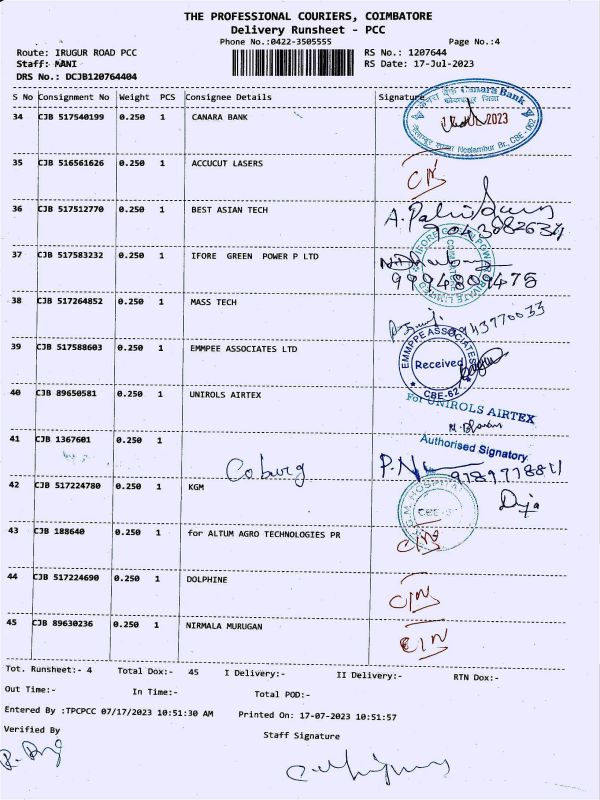 THE PROFESSIONAL COURIERS, COIMBATORE
Delivery Runsheet - PCC
Phone No.:0422-3505555 Page No.:4
Route: IRUGUR ROAD PCC RS No.: 1207644
Staff: MANI RS Date: 17-Jul-2023
DRS No.: DCJB120764404
S No Consignment No Weight PCS Consignee Details Signature
34 CJB 517540199 0.250 1 CANARA BANK
Canara Bank
JUL 2023
Neelambur Br., CBE
35 CJB 516561626 0.250 1 ACCUCUT LASERS
36 CJB 517512770 0.250 1 BEST ASIAN TECH
9043082634
37 CJB 517583232 0.250 1 IFORE GREEN POWER P LTD
9994809475
38 CJB 517264852 0.250 1 MASS TECH
9943770033
39 CJB 517588603 0.250 1 EMMPEE ASSOCIATES LTD
EMMPPE ASSOCIATES
Received
CBE-62
40 CJB 89650581 0.250 1 UNIROLS AIRTEX
For UNIROLS AIRTEX
Authorised Signatory
41 CJB 1367601 0.250 1
Coburg
42 CJB 517224780 0.250 1 KGM
K.G.M. HOSPITAL
43 CJB 188640 0.250 1 for ALTUM AGRO TECHNOLOGIES PR
44 CJB 517224690 0.250 1 DOLPHINE
45 CJB 89630236 0.250 1 NIRMALA MURUGAN
Tot. Runsheet:- 4 Total Dox:- 45 I Delivery:- II Delivery:- RTN Dox:-
Out Time:- In Time:- Total POD:-
Entered By :TPCPCC 07/17/2023 10:51:30 AM Printed On: 17-07-2023 10:51:57
Verified By Staff Signature